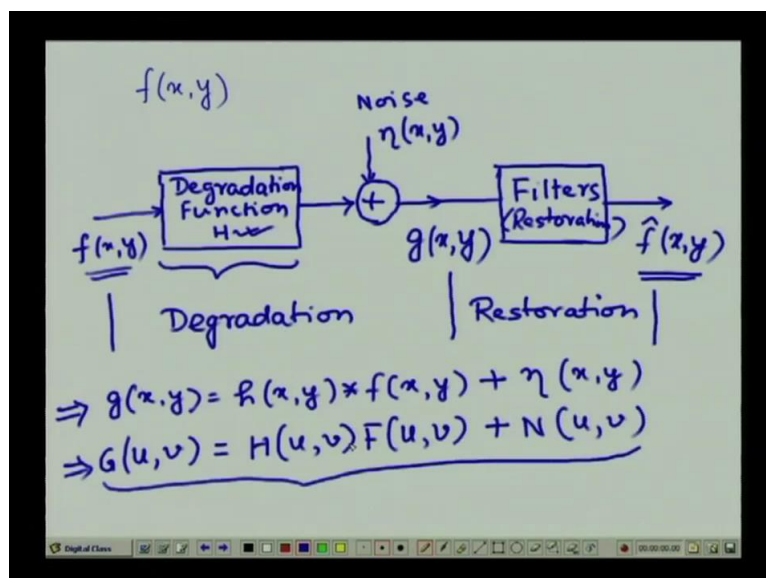 f(x,y)
Noise
η(x,y)
Degradation
Function
H
+
Filters
(Restoration)
f(x,y)
g(x,y)
f̂(x,y)
Degradation
Restoration
⇒ g(x,y) = h(x,y) * f(x,y) + η(x,y)
⇒ G(u,v) = H(u,v) F(u,v) + N(u,v)
Digital Class
00:00:00.00